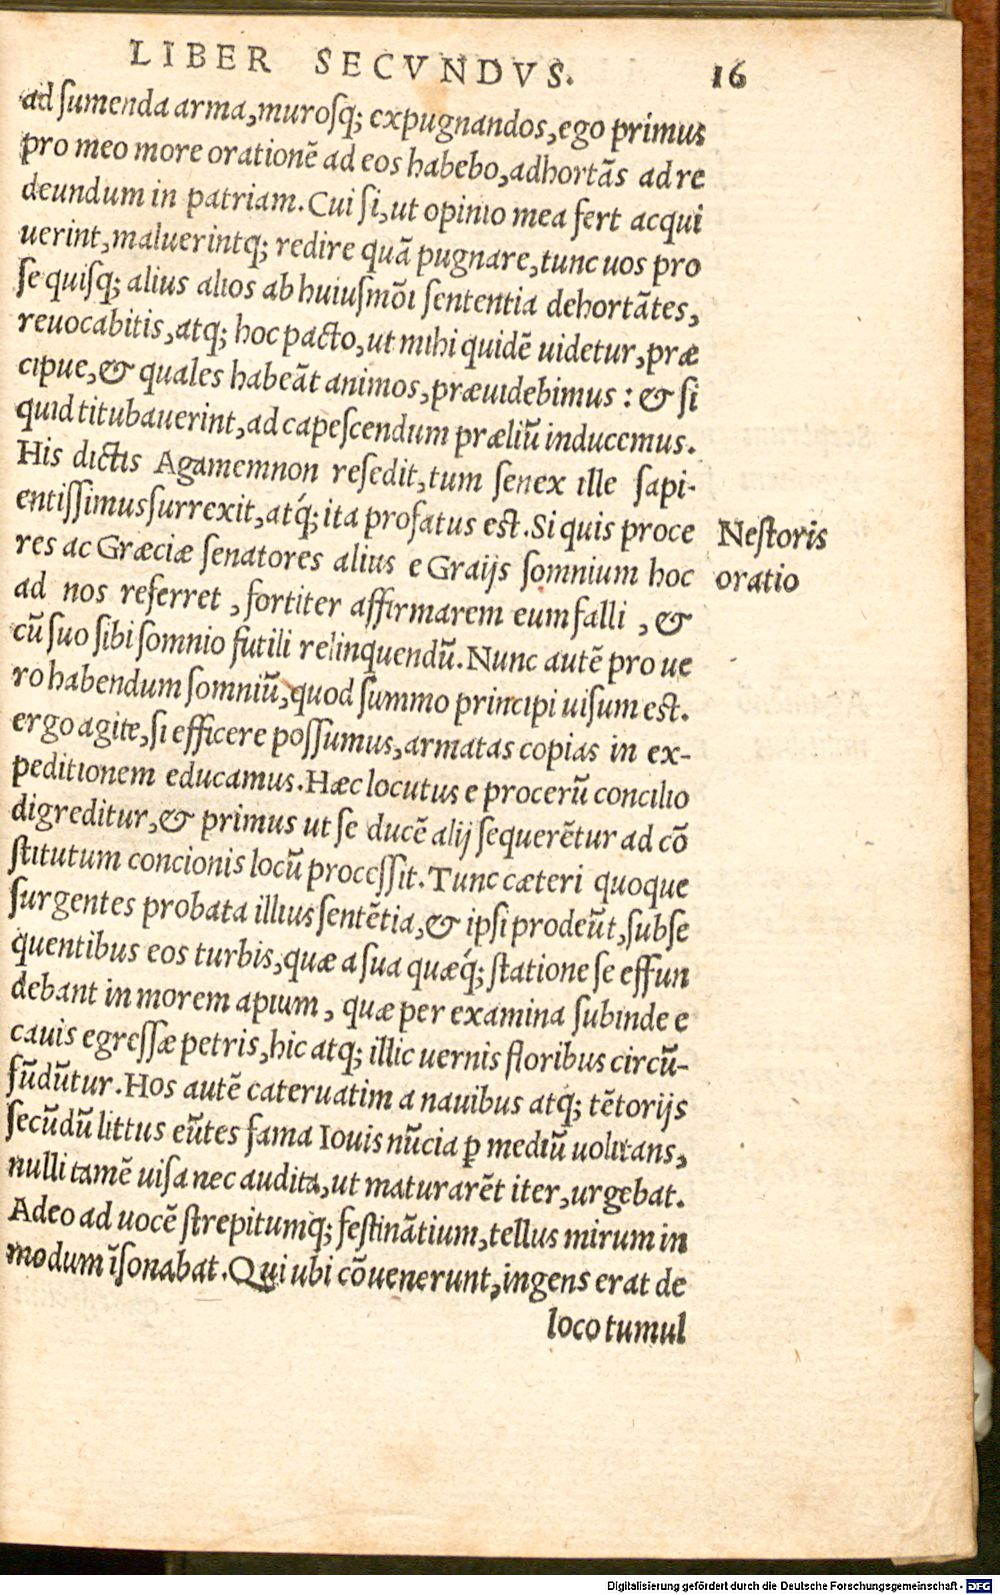 LIBER SECVNDVS. 16
ad ſumenda arma,muroſq; expugnandos,ego primus
pro meo more orationē ad eos habebo,adhortãs ad re
deundum in patriam.Cui ſi,ut opinio mea fert acqui
uerint,maluerintq; redire quã pugnare,tunc uos pro
ſe quiſq; alius alios ab huiuſmōi ſententia dehortãtes,
reuocabitis,atq; hoc pacto,ut mihi quidē uidetur,præ
cipue,& quales habeãt animos,præuidebimus : & ſi
quid titubauerint,ad capeſcendum præliũ inducemus.
His dictis Agamemnon reſedit,tum ſenex ille ſapi-
entiſſimus ſurrexit,atq́; ita profatus eſt.Si quis proce
res ac Græciæ ſenatores alius e Graijs ſomnium hoc
ad nos referret , fortiter affirmarem eum falli , &
cũ ſuo ſibi ſomnio futili relinquendũ.Nunc autē pro ue
ro habendum ſomniũ,quod ſummo principi uiſum eſt.
ergo agite,ſi efficere poſſumus,armatas copias in ex-
peditionem educamus.Hæc locutus e procerũ concilio
digreditur,& primus ut ſe ducē alij ſequerētur ad cō
ſtitutum concionis locũ proceſſit.Tunc cæteri quoque
ſurgentes probata illius ſentētia,& ipſi prodeũt,ſubſe
quentibus eos turbis,quæ a ſua quæq́; ſtatione ſe effun
debant in morem apium , quæ per examina ſubinde e
cauis egreſſæ petris,hic atq; illic uernis floribus circũ-
fũdũtur.Hos autē cateruatim a nauibus atq; tētorijs
ſecũdũ littus eũtes fama Iouis nũcia ꝑ mediũ uolitans,
nulli tamē uiſa nec audita,ut maturarēt iter,urgebat.
Adeo ad uocē ſtrepitumq; feſtinãtium,tellus mirum in
modum īſonabat.Qui ubi cōuenerunt,ingens erat de
loco tumul
Neſtoris
oratio
Digitalisierung gefördert durch die Deutsche Forschungsgemeinschaft - DFG